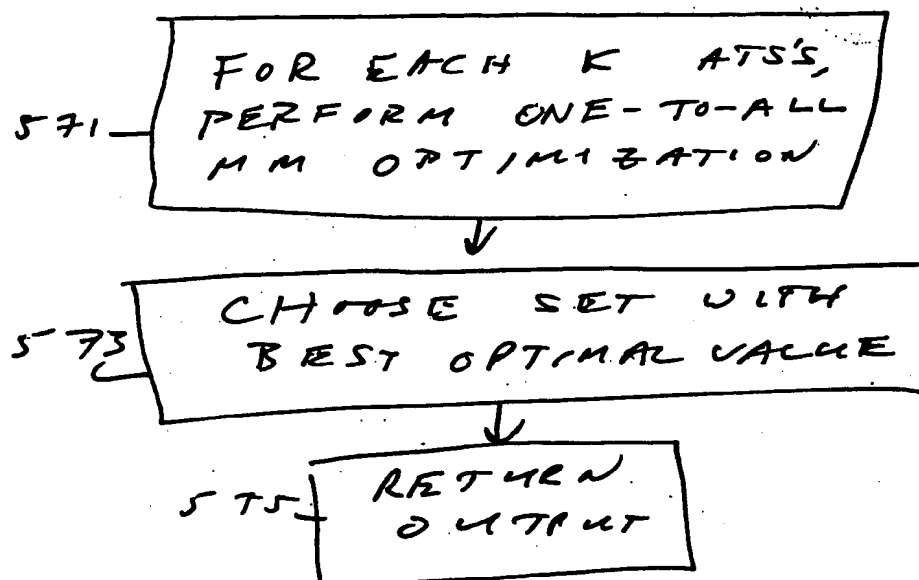 FOR EACH K ATS'S,
571 PERFORM ONE-TO-ALL
MM OPTIMIZATION
CHOOSE SET WITH
573 BEST OPTIMAL VALUE
575 RETURN
OUTPUT